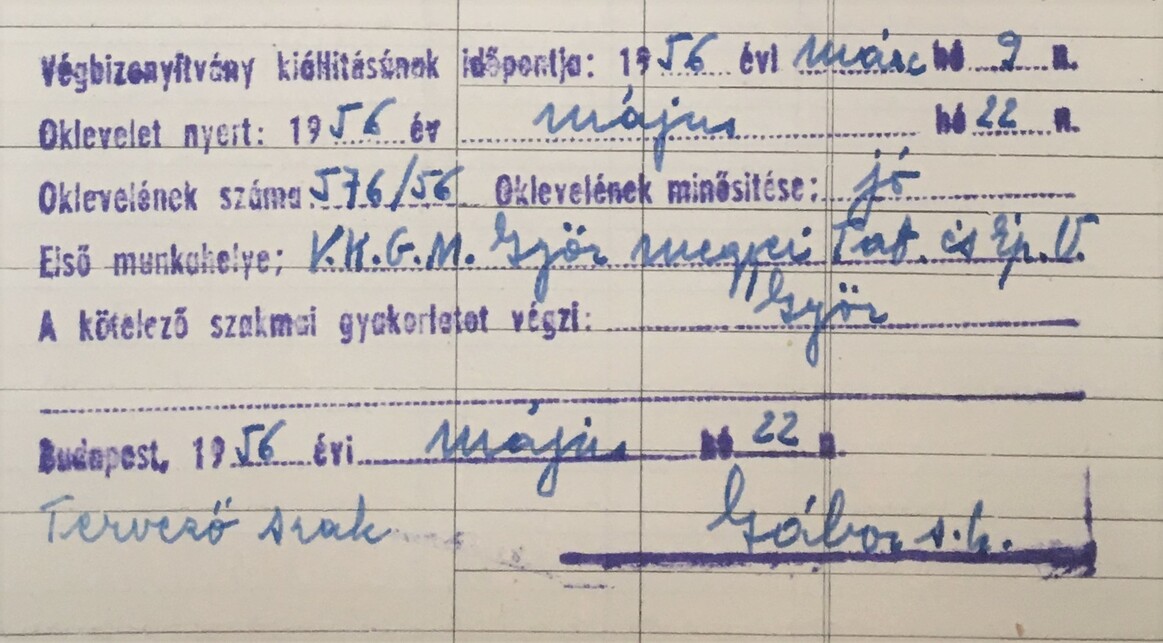 Végbizonyítvány kiállításának időpontja: 1956 évi márc hó 9 n.
Oklevelet nyert: 1956 év május hó 22 n.
Oklevelének száma 576/56 Oklevelének minősítése: jó
Első munkahelye: V.K.G.M. Győr megyei Tat. és Ép. V.
Győr
A kötelező szakmai gyakorlatot végzi:
Budapest, 1956 évi május hó 22 n.
Tervező szak Gábor s.k.